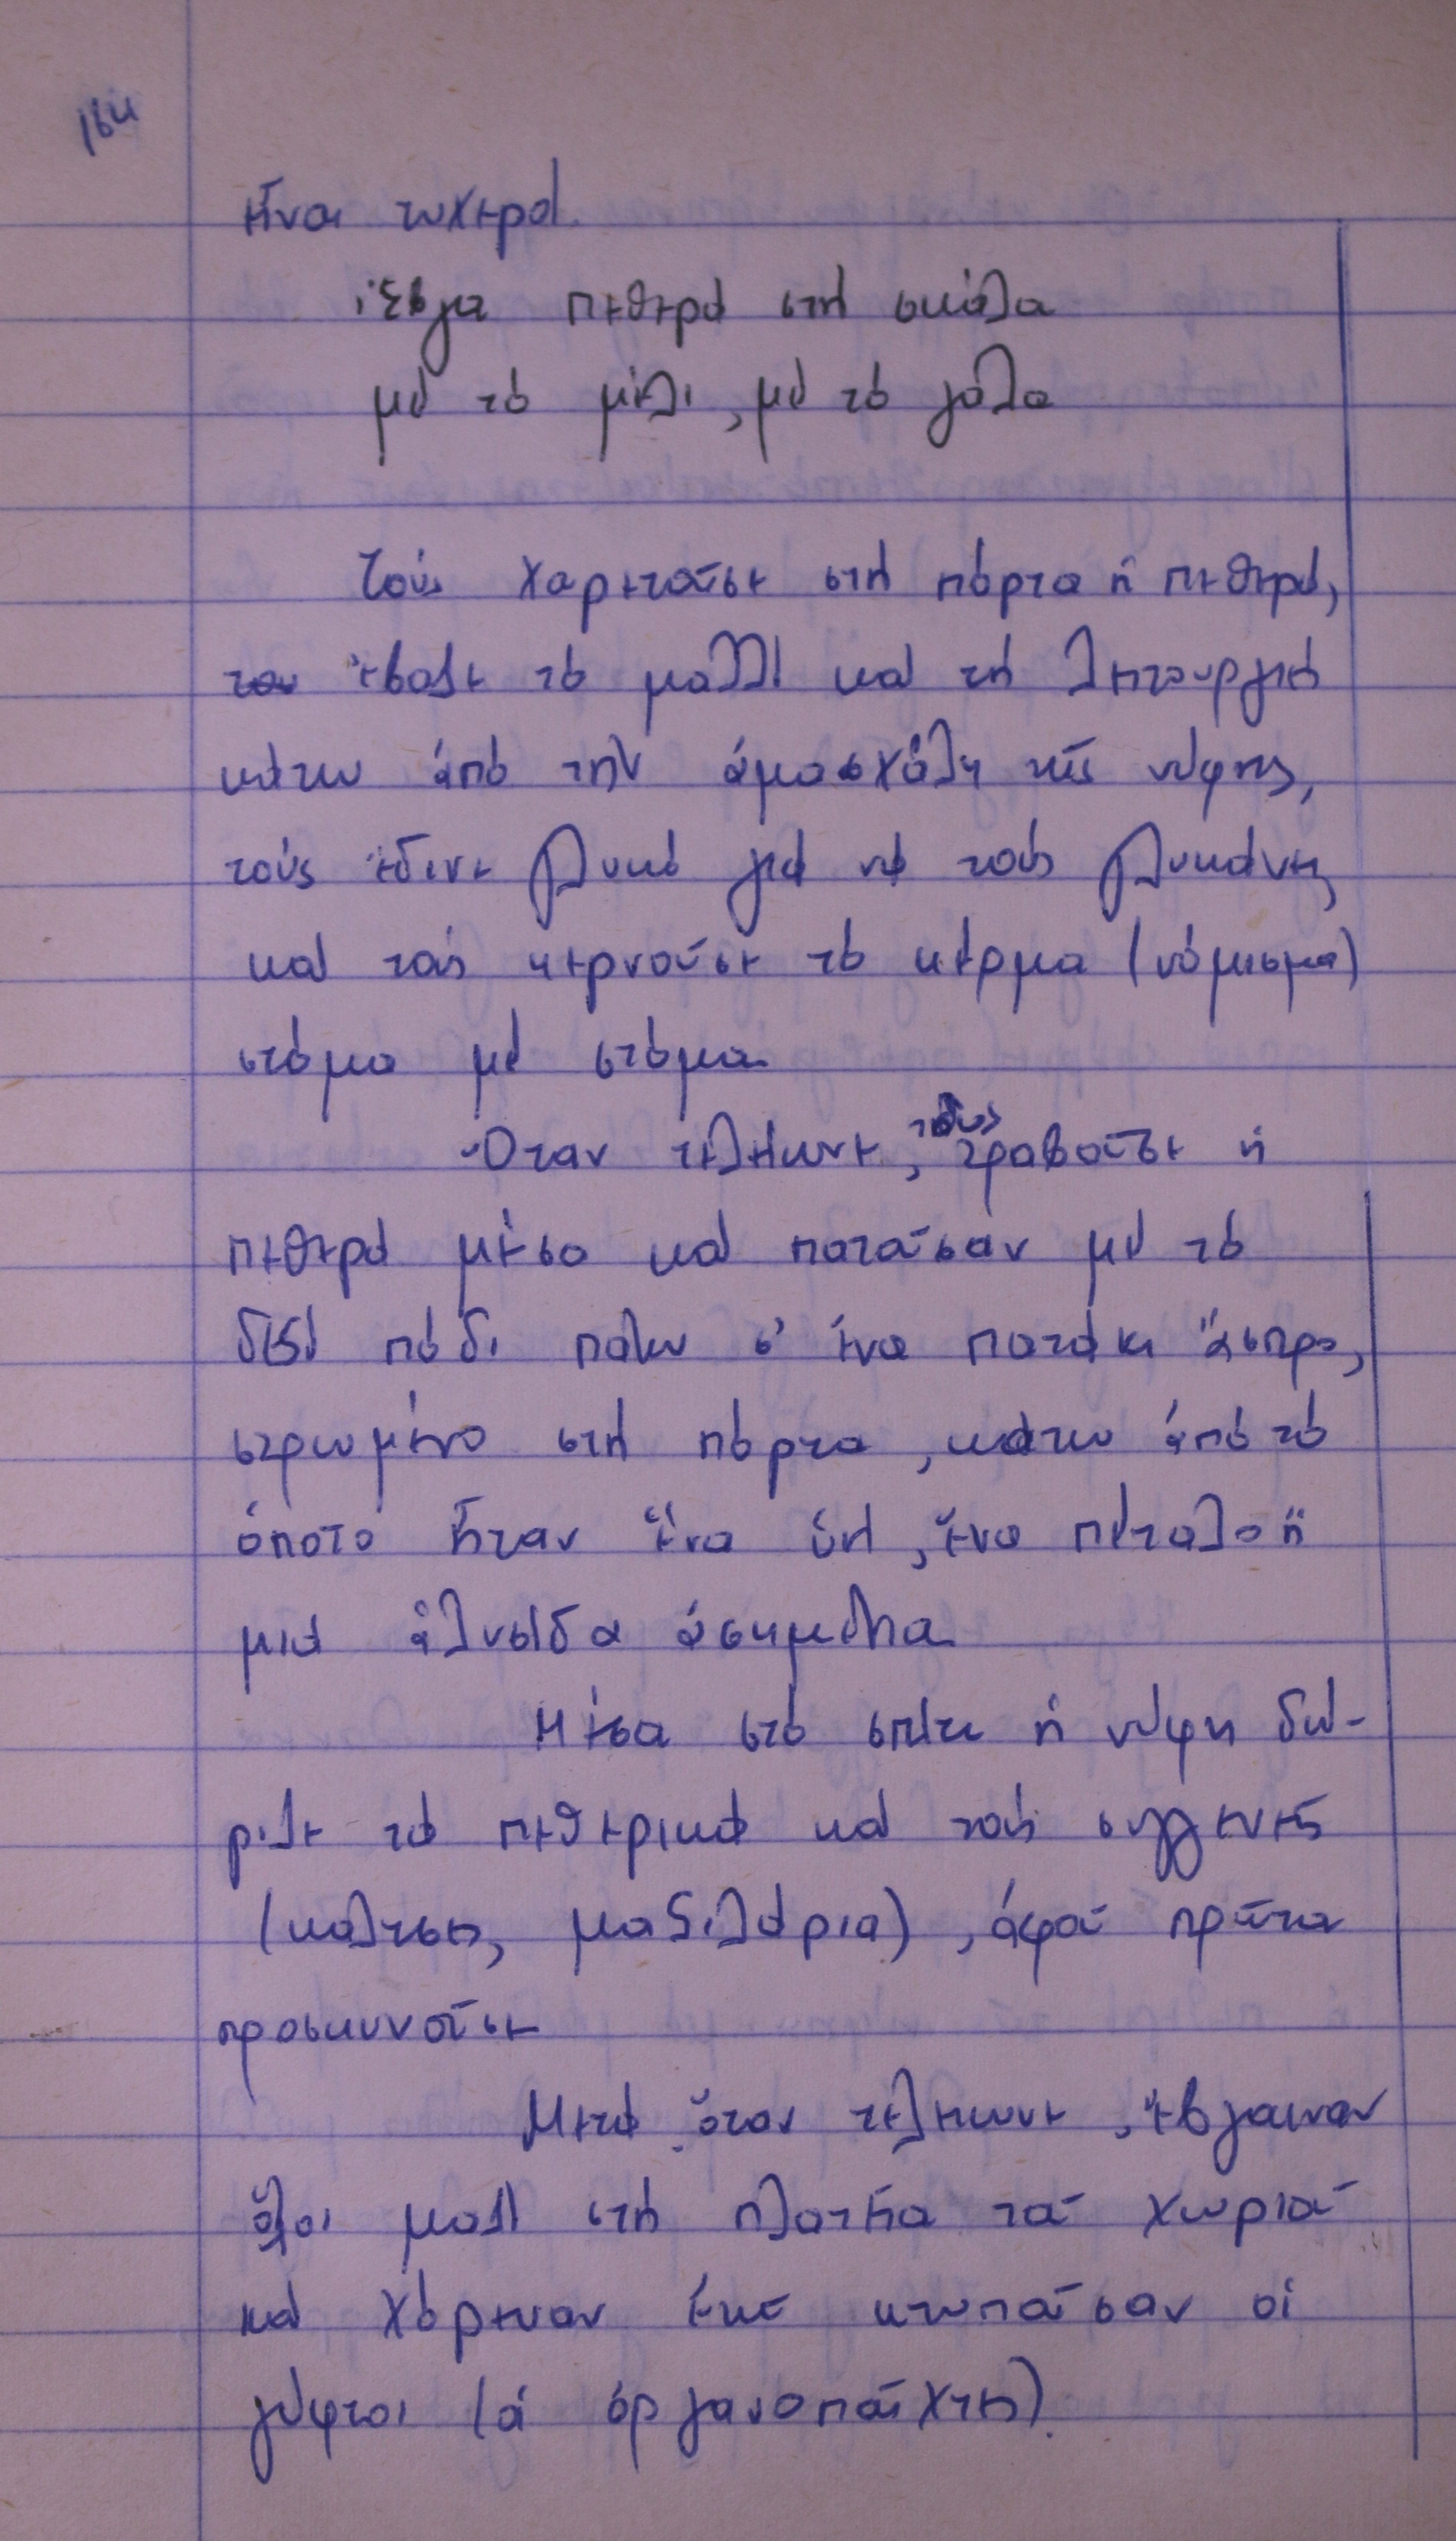 164
εἶναι τυχερά.
Ἔβγα πεθερά στή σκάλα
μέ τό μέλι, μέ τό γάλα
Τούς χαιρετοῦσε στή πόρτα ἡ πεθερά,
ἔβαζε τό μαλλί καί τή λειτουργιά
κάτω ἀπό τήν ἀμασχάλη τῆς νύφης,
τούς ἔδινε γλυκό γιά νά τούς γλυκάνει
καί τούς κερνοῦσε τό κέρμα (νόμισμα)
στόμα μέ στόμα.
Ὅταν τελείωνε, τούς τραβοῦσε ἡ
πεθερά μέσα καί πατοῦσαν μέ τό
δεξί πόδι πάνω σ' ἕνα πατάκι ἄσπρο,
στρωμένο στή πόρτα, κάτω ἀπό τό
ὁποῖο ἦταν ἕνα ὑνί, ἕνα πέταλο ἤ
μιά ἁλυσίδα ἀσημένια.
Μέσα στό σπίτι ἡ νύφη δώ-
ριζε τά πεθερικά καί τούς συγγενεῖς
(κάλτσες, μαξιλάρια), ἀφοῦ πρῶτα
προσκυνοῦσε
Μετά ὅταν τελείωνε, ἔβγαιναν
ὅλοι μαζί στή πλατεῖα τοῦ χωριοῦ
καί χόρευαν ἐκεῖ κτυποῦσαν οἱ
γύφτοι (οἱ ὀργανοπαῖχτες).